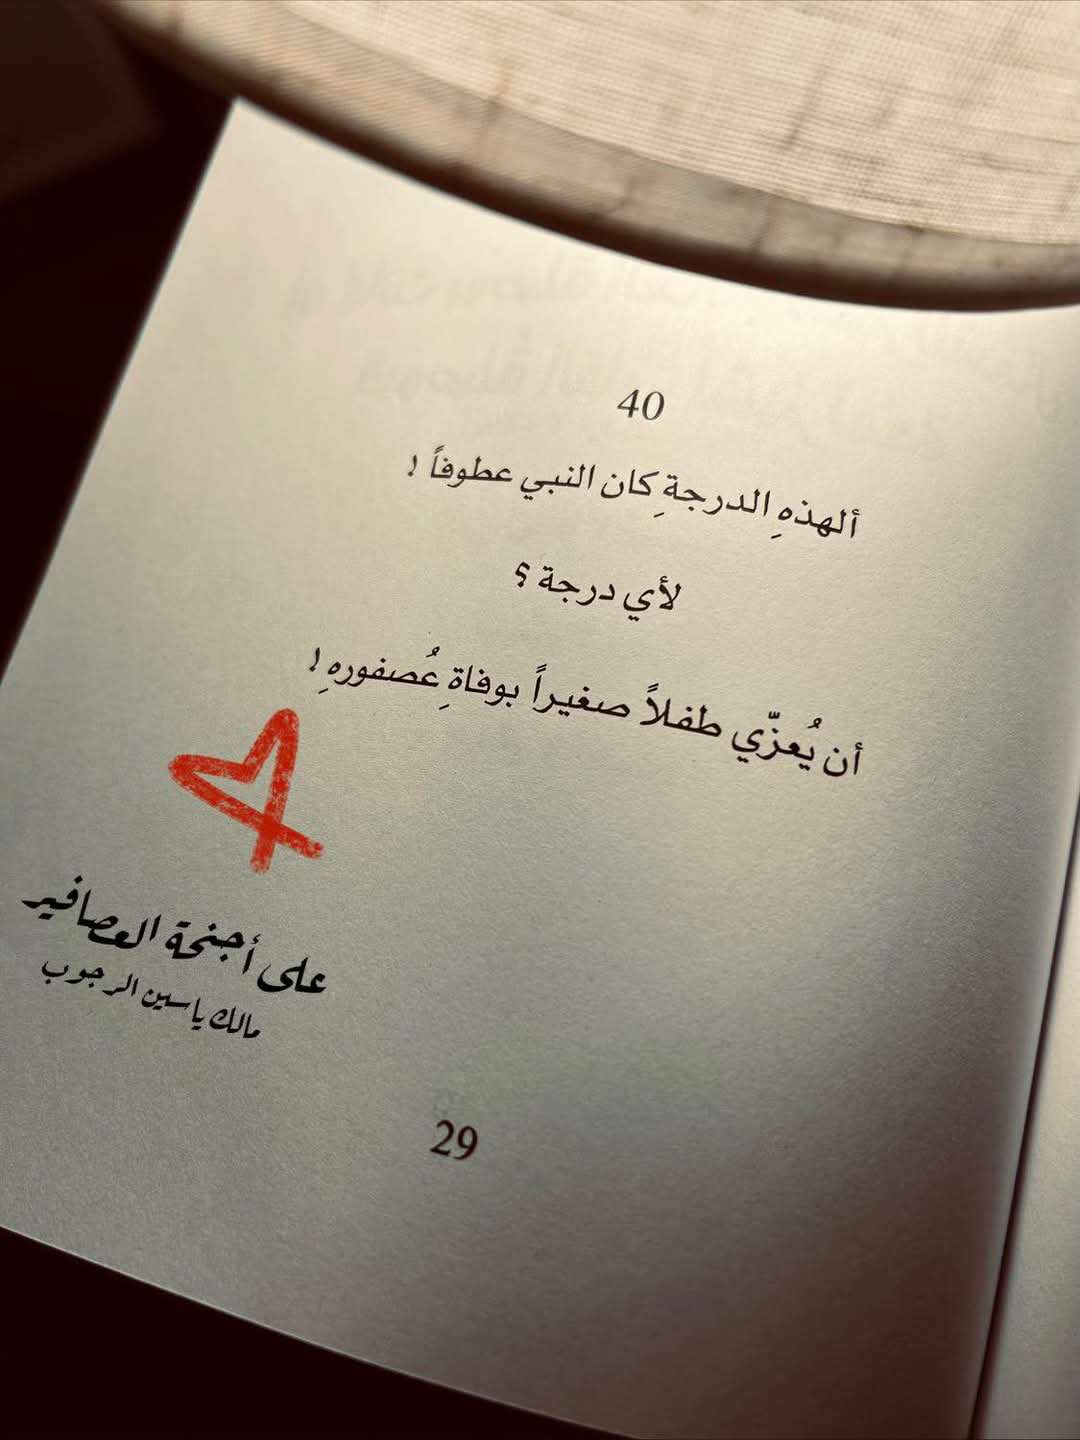 40
ألهذهِ الدرجةِ كان النبي عطوفاً !
لأي درجة ؟
أن يُعزّي طفلاً صغيراً بوفاةِ عُصفورهِ !
على أجنحة العصافير
مالك ياسين الرجوب
29